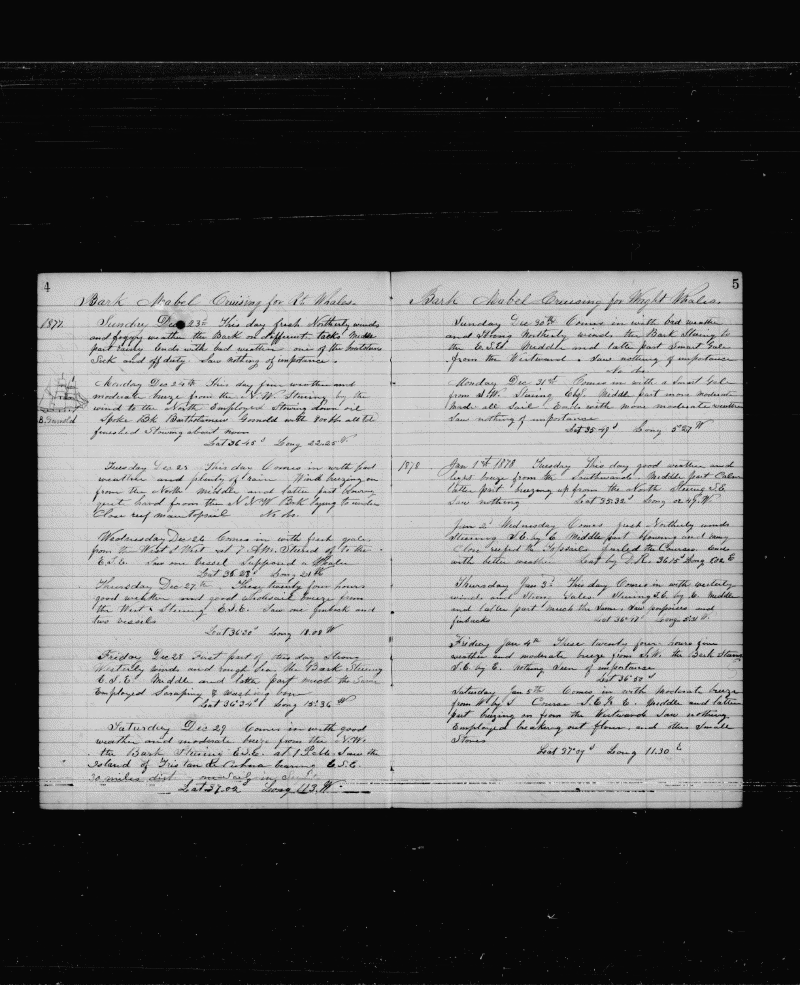 4
Bark Mabel Cruising for Rt Whales.
1877. Sunday Dec 23rd This day fresh Northerly winds
and foggy weather the Bark on different tacks Middle
part calm Ends with bad weather one of the boatsteerers
Sick and off duty. Saw nothing of importance.
Monday Dec 24th This day fine weather and
moderate breeze from the N.W. Steering by the
wind to the North Employed Stowing down oil
B. Gosnold Spoke Bk Bartholomew Gosnold with 800 bbls all told
finished Stowing about noon
Lat 36.48 S Long 22.25 W
Tuesday Dec 25 This day Comes in with foul
weather and plenty of rain Wind breezing on
from the North Middle and latter part blowing
hard from the N.N.W. Bark lying to under
Close reef main topsail No obs.
Wednesday Dec 26 Comes in with fresh gale
from the West S West at 7 A.M. Steered off to the
E.S.E. Saw one vessel Supposed a Whaler
Lat 36.28 S Long 21 W
Thursday Dec 27th These twenty four hours
good weather and good wholesail breeze from
the West Steering E.S.E. Saw one finback and
two vessels
Lat 36.20 S Long 18.08 W
Friday Dec 28 First part of this day Strong
Westerly winds and rough Sea, the Bark Steering
E.S.E. Middle and latter part much the Same
Employed Scraping & washing bone
Lat 36.34 S Long 15.36 W
Saturday Dec 29 Comes in with good
weather and moderate breeze from the N.W.
the Bark Steering E.S.E. at 1 P.M. Saw the
Island of Tristan de Cuhna bearing E.S.E.
30 miles dist
Lat 37.02 Long 11.3 W.
5
Bark Mabel Cruising for Wright Whales.
Sunday Dec 30th Comes in with bad weather
and Strong Northerly winds the Bark Steering to
the E.S.E. Middle and latter part Smart Gale
from the Westward. Saw nothing of importance
No obs.
Monday Dec 31st Comes in with a Smart Gale
from S.W. Steering Middle part more moderate
Made all Sail. Ends with more moderate weather
Saw nothing of importance
Lat 35.49 S Long 5.27 W
1878 Jan 1st 1878 Tuesday This day good weather and
light breeze from the Southward. Middle part Calm
latter part breezing up from the North Steering S.E.
Saw nothing Lat 35.32 S Long 02.49 W
Jan 2d Wednesday Comes fresh Northerly winds
Steering S.E. by E. Middle part blowing and rainy
Close reefed the Topsails furled the Courses Ends
with better weather Lat by D.R. 36.15 S Long 1.02 E
Thursday Jan 3d This day Comes in with westerly
winds and Strong Gales Steering S.E. by E. Middle
and latter part much the Same. Saw porpoises and
finbacks Lat 36.41 S Long 5.31 E.
Friday Jan 4th These twenty four hours fine
weather and moderate breeze from S.W. the Bark Steering
S.E. by E. nothing Seen of importance
Lat 36.50 S
Saturday Jan 5th Comes in with Moderate breeze
from W by S Course S.E. by E. Middle and latter
part breezing on from the Westward Saw nothing
Employed breaking out flour, and other Small
Stores
Lat 37.07 S Long 11.30 E